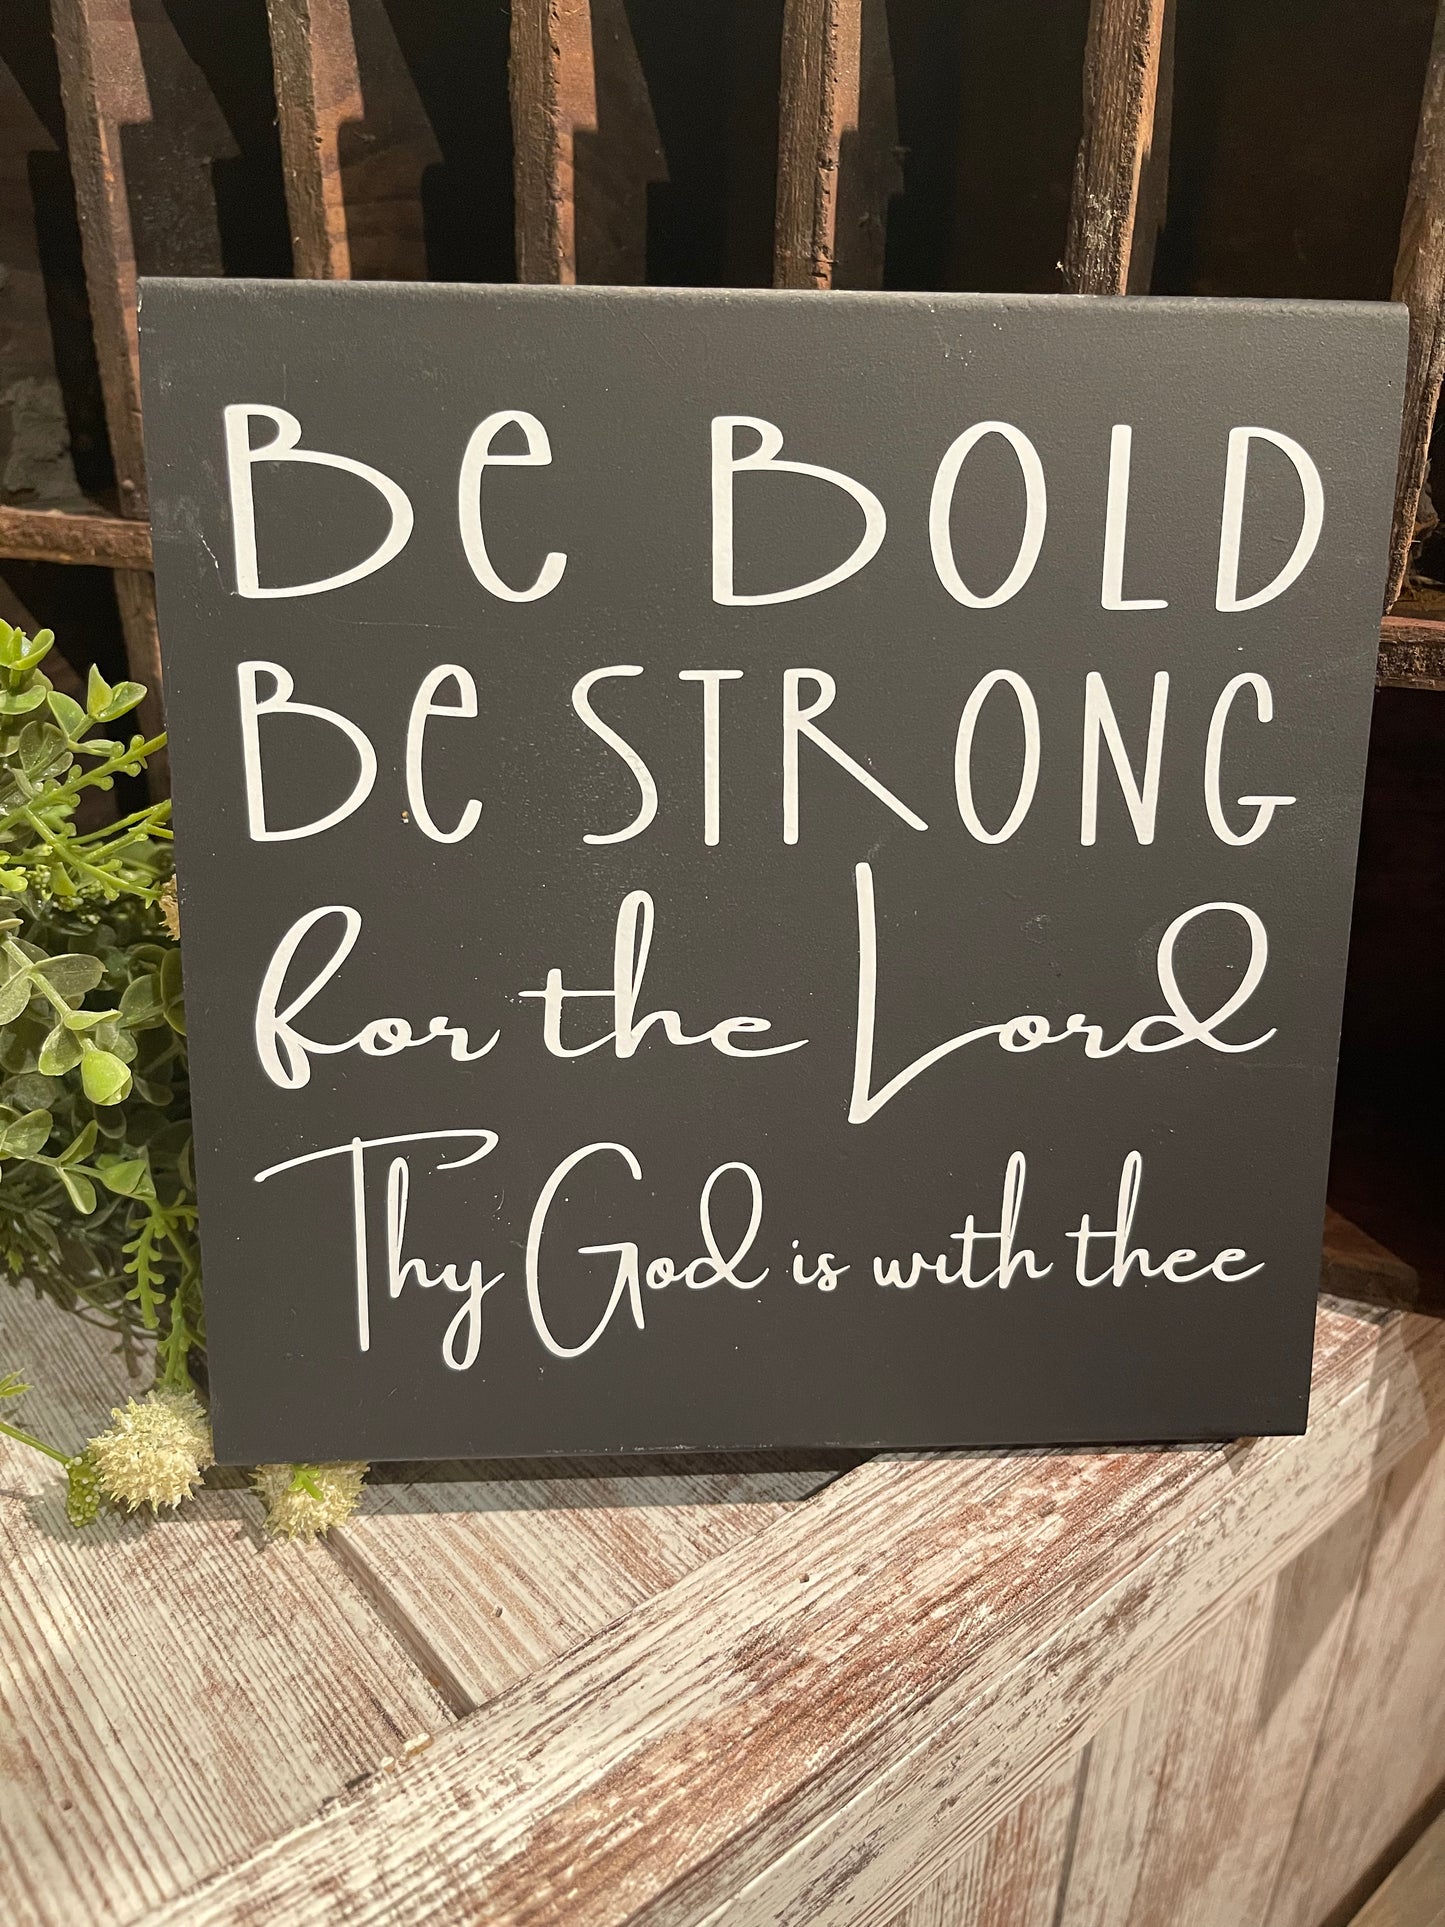 Be BOLD
Be STRONG
for the Lord
Thy God is with thee